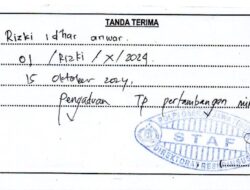 TANDA TERIMA
Rizki idhar anwar.
01 / Rizki / X / 2024.
15 Oktober 2024.
Pengaduan TP pertambangan
STAF
DIREKTORAT RES